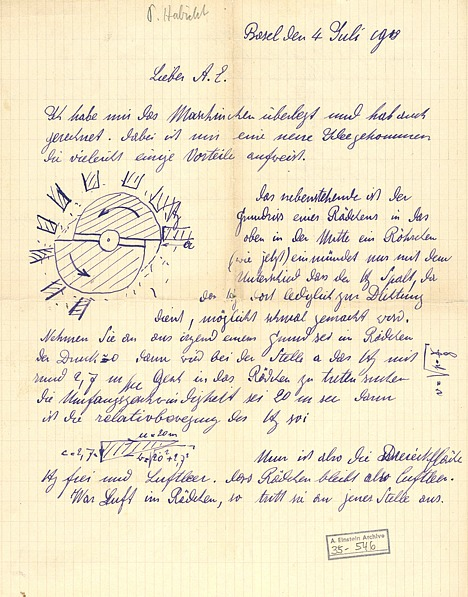 P. Habicht
Basel den 4 Juli 1908
Lieber A. E.
Ich habe mir das Maschinchen überlegt und hab auch
gerechnet. Dabei ist mir eine neue Idee gekommen
die vieleicht einige Vorteile aufweist.
Das nebenstehende ist der
Grundriss eines Rädchens in das
oben in der Mitte ein Röhrchen
(wie jetzt) einmündet nur mit dem
Unterschied dass der Hg Spalt, da
das Hg dort lediglich zur Dichtung
dient, möglichst schmal gemacht wird.
Nehmen Sie an aus irgend einem Grund sei im Rädchen
der Druck = 0 dann wird bei der Stelle a das Hg mit
rund 2,7 m/sec Gesch in das Rädchen zu treten suchen
die Umfangsgeschwindigkeit sei 20 m sec dann
ist die relativbewegung des Hg so:
a
u = 20 m
c = 2,7
v = √20² + 2,7²
Nun ist also die Dreieckfläche
Hg frei und Luftleer. Das Rädchen bleibt also luftleer.
War Luft im Rädchen, so tritt sie an jener Stelle aus.
A. Einstein Archive
35-546